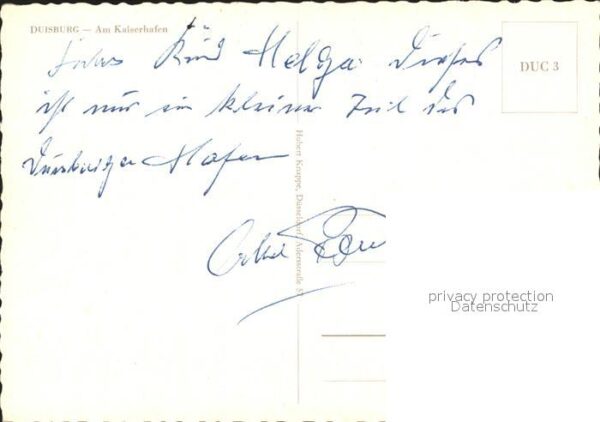 DUISBURG — Am Kaiserhafen
Liebes Kind Helga. Dieses
ist nur ein kleiner Teil des
Duisburger Hafen
Onkel
DUC 3
Hubert Knappe, Düsseldorf, Adersstraße
privacy protection
Datenschutz